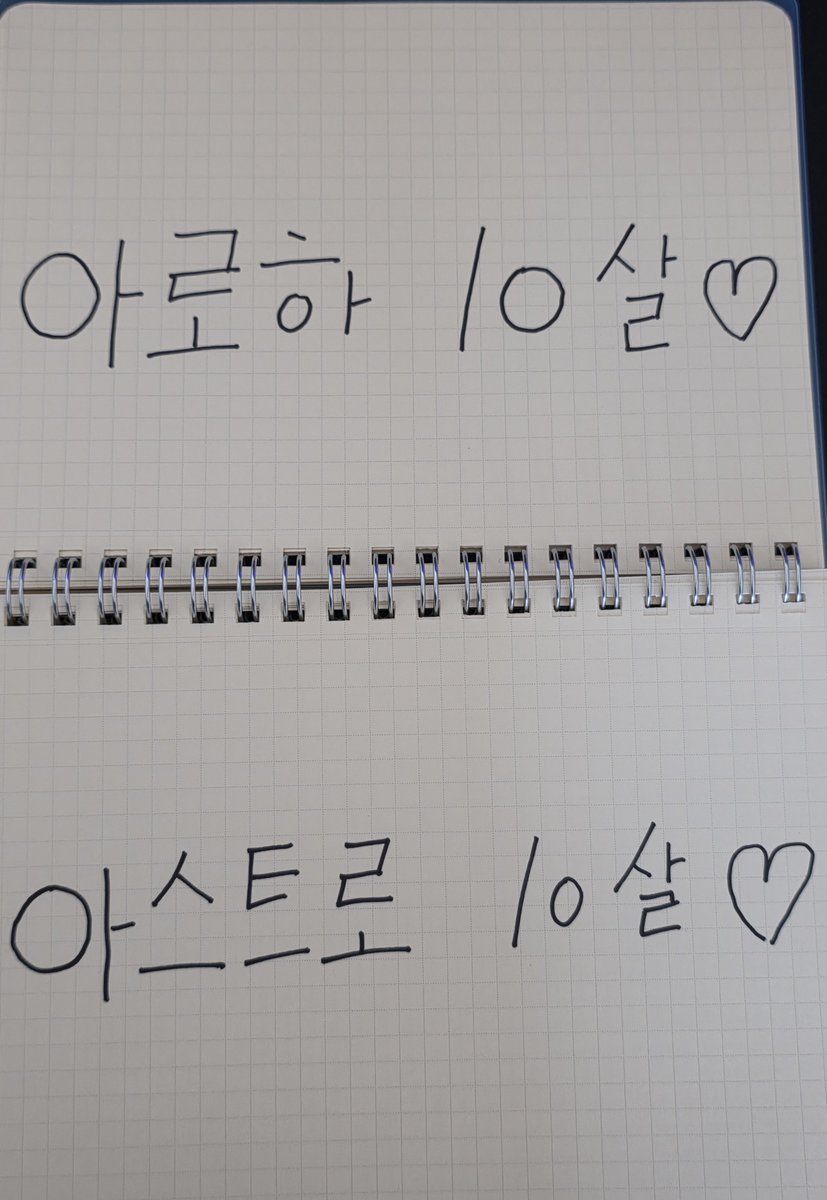 아로하 10살♡
아스트로 10살♡